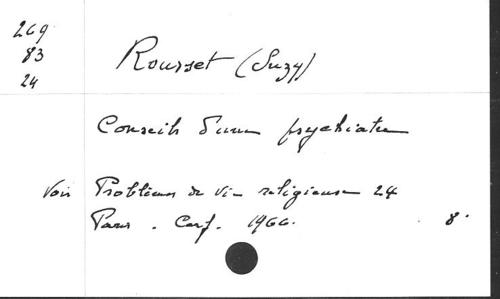 269
83
24
Rousset (Suzy)
Conseils d'une psychiatre
Voir Problèmes de vie religieuse 24
Paris. Cerf. 1966. 8°